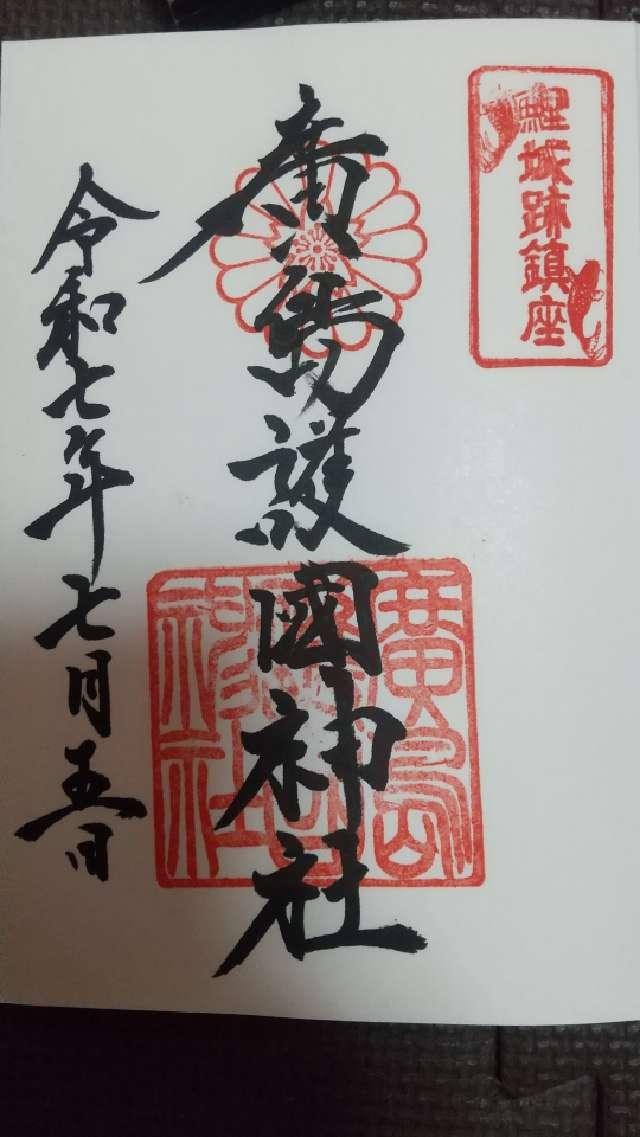 鯉城跡鎮座
廣島護國神社
廣島護國神社
令和七年七月五日